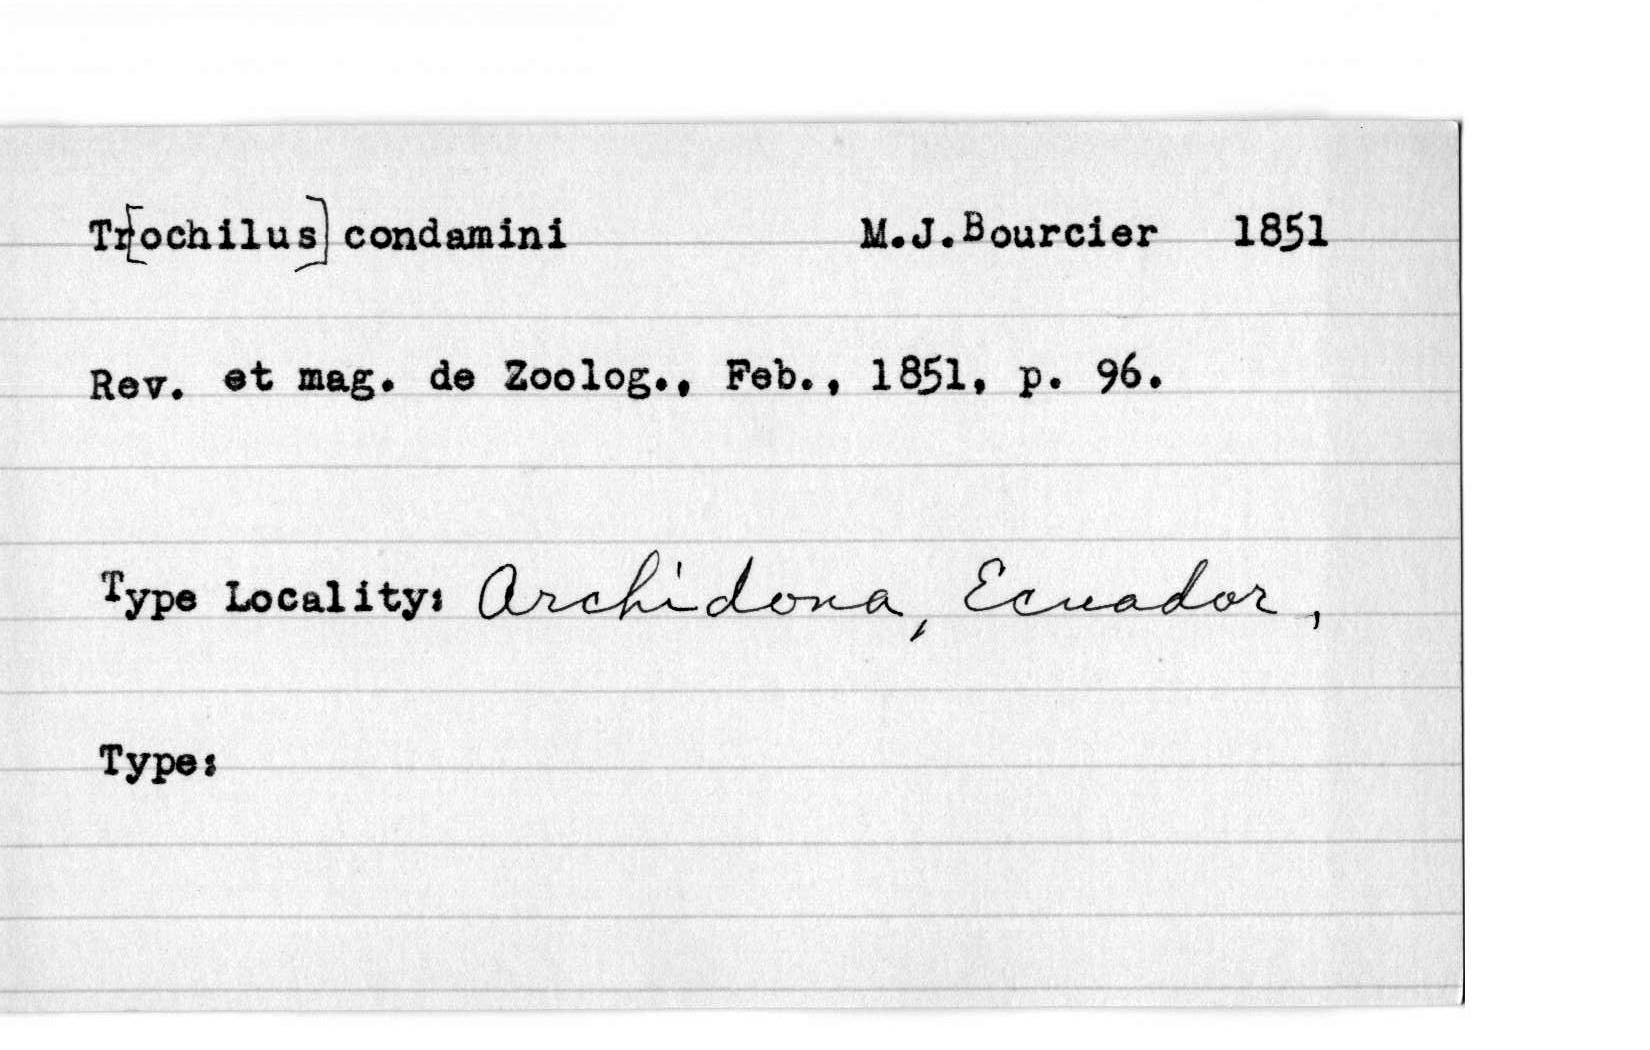 Tr[ochilus] condamini M.J.Bourcier 1851
Rev. et mag. de Zoolog., Feb., 1851, p. 96.
Type Locality: Archidona, Ecuador,
Type: